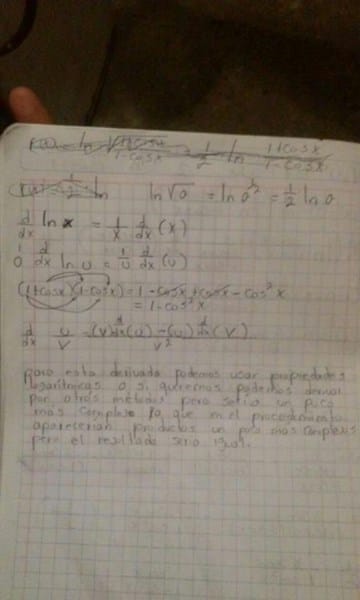 f(x) = ln √(1+cosx / 1-cosx) = 1/2 ln 1+cosx / 1-cosx
1/2 ln
ln√o = ln o^1/2 = 1/2 ln o
d/dx ln x = 1/x d/dx (x)
d/dx ln u = 1/u d/dx (u)
(1+cosx)(1-cosx) = 1 - cosx + cosx - cos²x
= 1-cos²x
d/dx u/v = (v) d/dx (u) - (u) d/dx (v) / v²
para esta derivada podemos usar propiedades
logaritmicas o si queremos podemos derivar
por otros metodos pero seria un poco
mas complejo ya que en el procedimiento
aparecerian productos un poco mas complejos
pero el resultado sera igual.